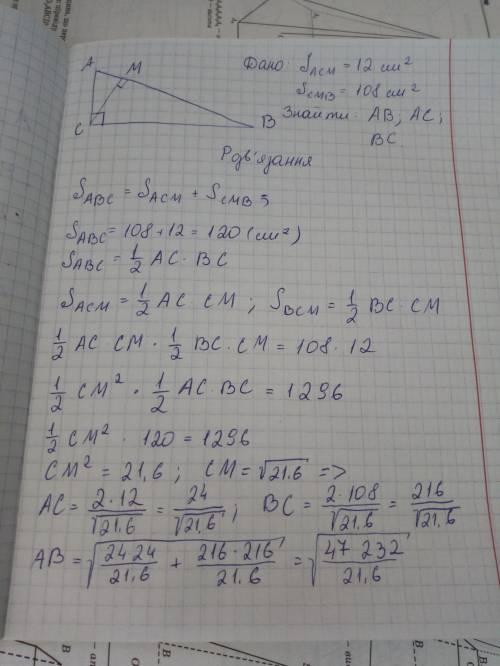 Дано: S_ACM = 12 см²
S_CMB = 108 см²
Знайти: AB, AC;
BC
A M
C B
Розв'язання
S_ABC = S_ACM + S_CMB;
S_ABC = 108 + 12 = 120 (см²)
S_ABC = 1/2 AC · BC
S_ACM = 1/2 AC · CM ; S_BCM = 1/2 BC · CM
1/2 AC · CM · 1/2 BC · CM = 108 · 12
1/2 CM² · 1/2 AC · BC = 1296
1/2 CM² · 120 = 1296
CM² = 21,6 ; CM = √21.6 =>
AC = 2·12/√21.6 = 24/√21,6 ; BC = 2·108/√21.6 = 216/√21,6
AB = √(24·24/21.6 + 216·216/21.6) = √(47 232/21.6)